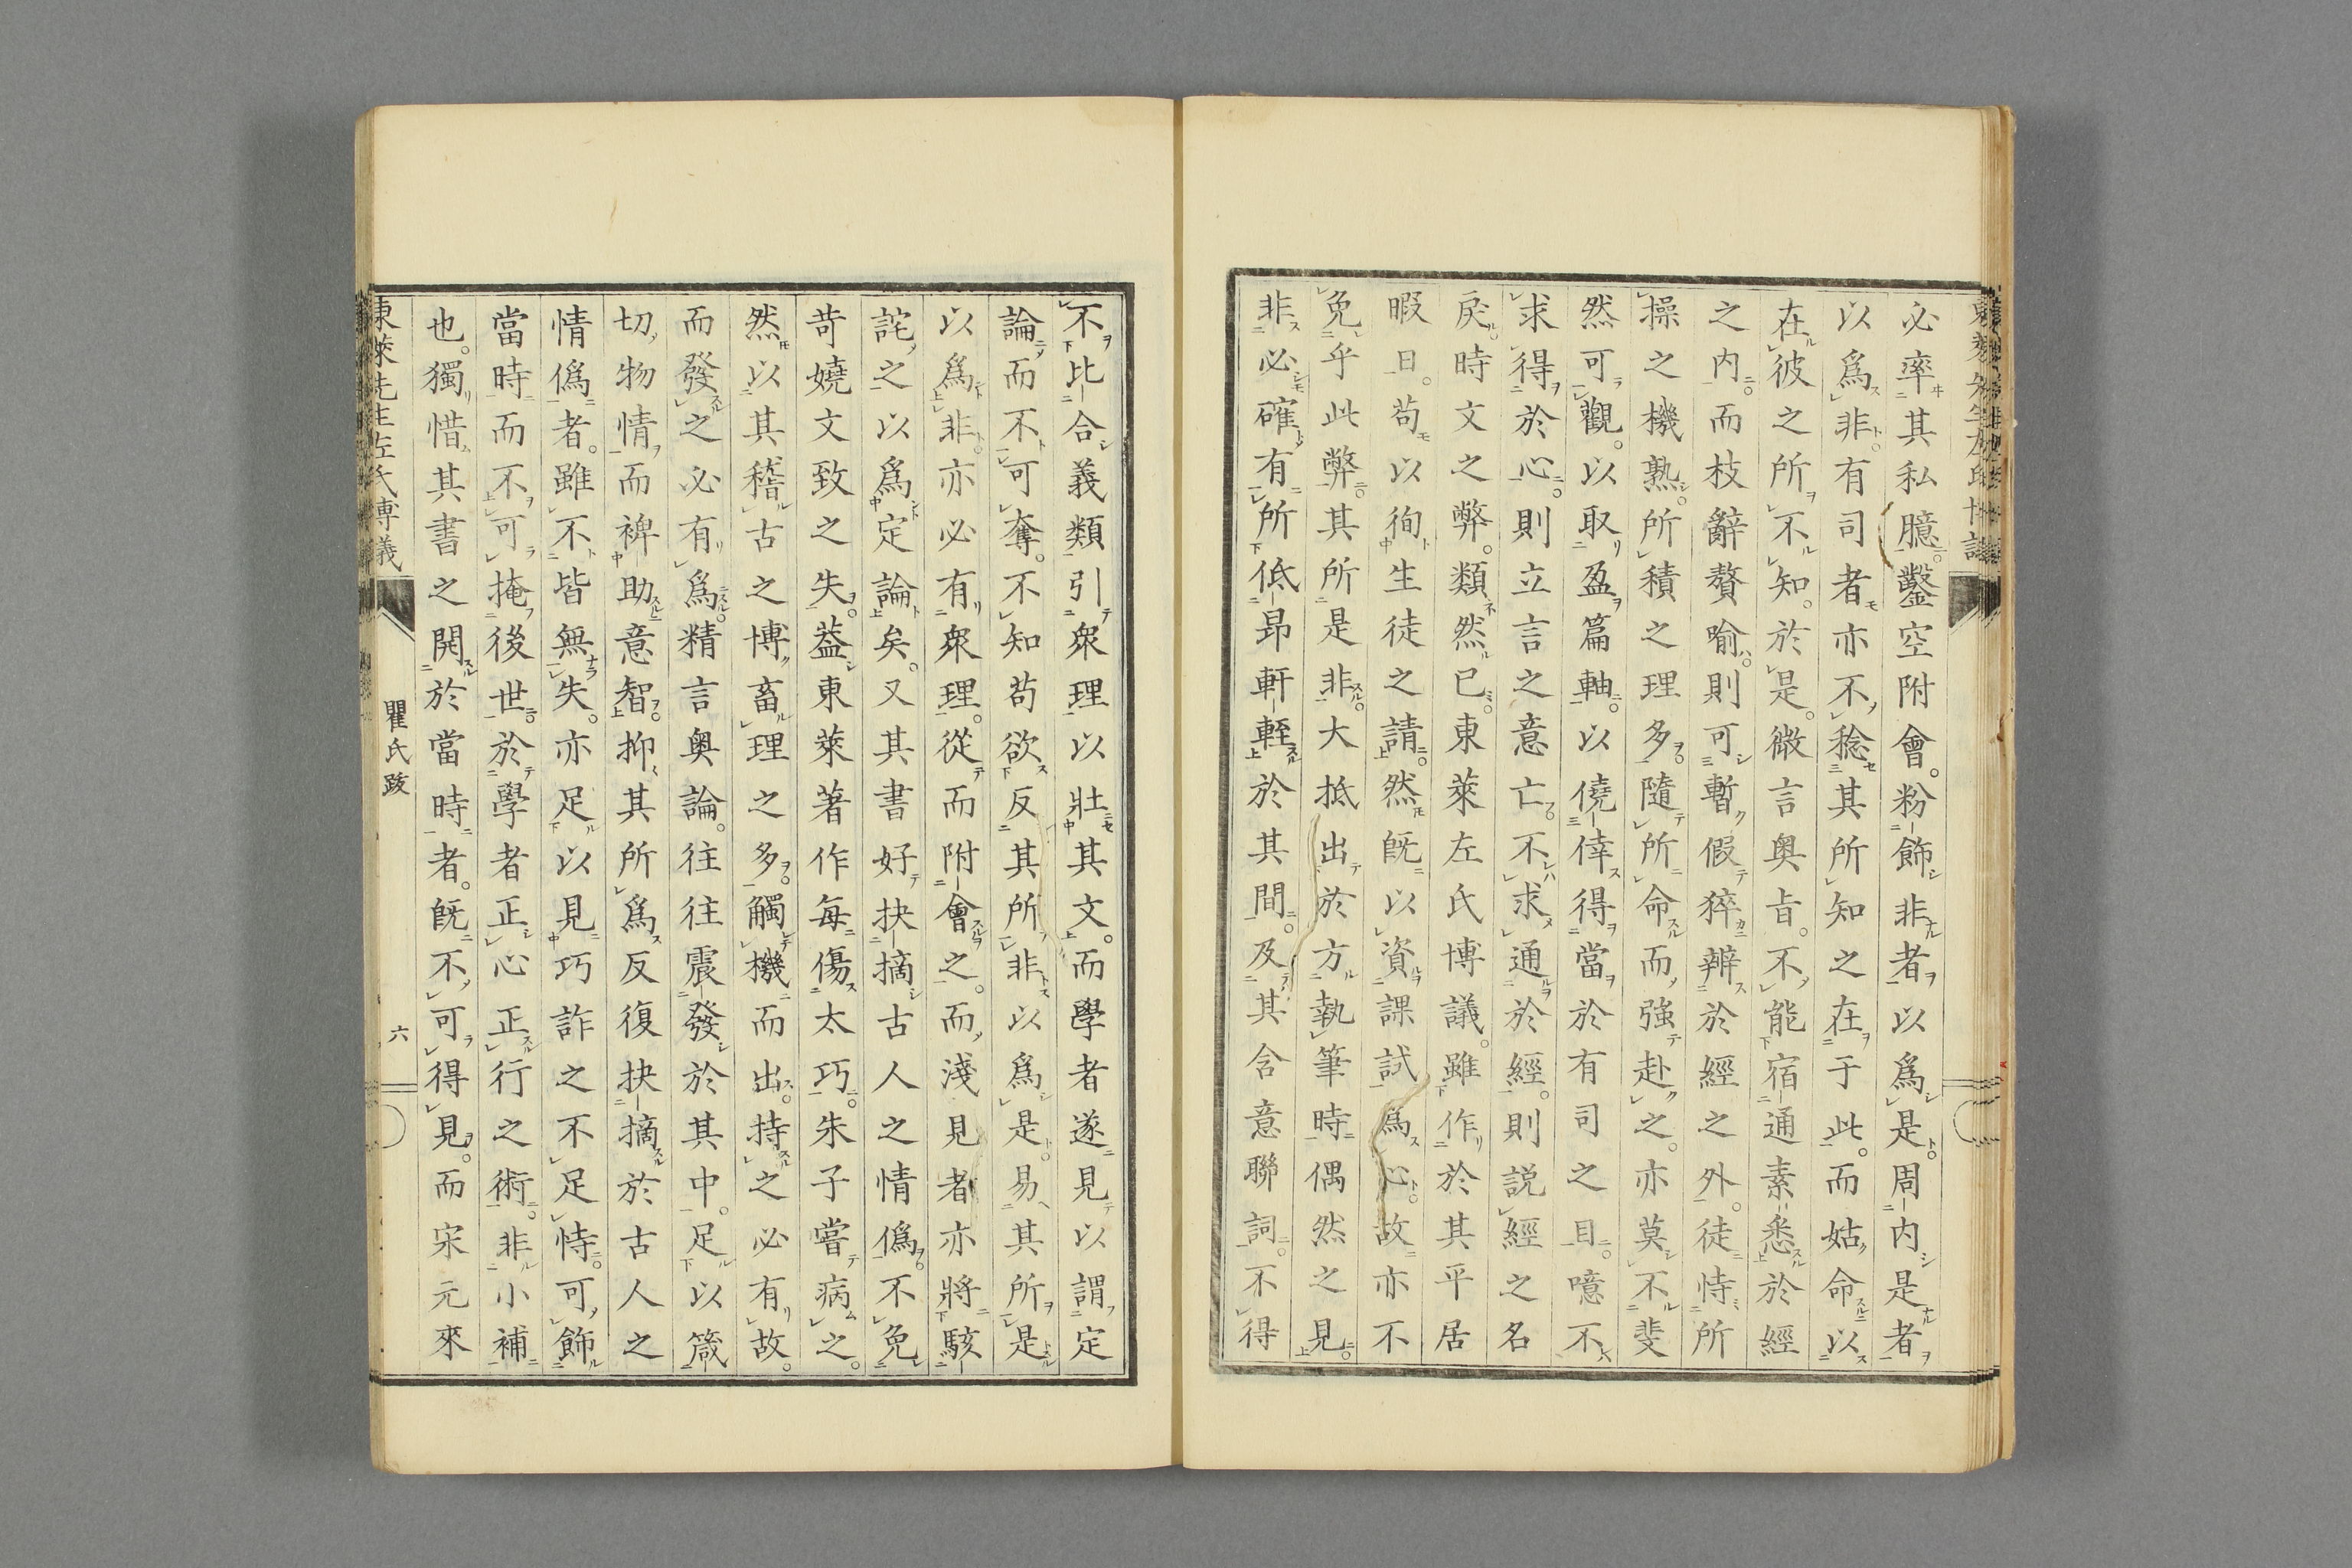 必率其私臆鑿空附會。粉飾非者以爲是周内是者
以爲非有司者亦不稔其所知之在于此。而姑命以
在彼之所不知。於是。微言奥旨。不能宿通素悉於經
之内。而枝辭贅喻。則可暫假猝辨於經之外。徒恃所
操之機熟。所積之理多。隨所命而強赴之。亦莫不斐
然可觀。以取盈篇軸。以僥倖得當於有司之目。噫不
求得於心。則立言之意亡。不求通於經。則説經之名
戻。時文之弊。類然已。東萊左氏博議。雖作於其平居
暇日。苟以徇生徒之請。然既以資課試爲心。故亦不
免乎此弊。其所是非。大抵出於方執筆時偶然之見
非必確有所低昂軒輊於其間。及其含意聯詞。不得
不比合義類引衆理以壯其文。而學者遂見以謂定
論而不可奪。不知苟欲反其所非以爲是。易其所是
以爲非。亦必有衆理。從而附會之。而淺見者亦將駭
詫之以爲定論矣。又其書好抉摘古人之情僞。不免
苛嬈文致之失。葢東萊著作每傷太巧。朱子嘗病之。
然以其稽古之博畜理之多。觸機而出。持之必有故。
而發之必有爲。精言奥論。往往震發於其中。足以箴
切物情而裨助意智。抑其所爲反復抉摘於古人之
情僞者。雖不皆無失。亦足以見巧詐之不足恃。可飾
當時而不可掩後世。於學者正心正行之術。非小補
也。獨惜其書之開於當時者。既不可得見。而宋元來
東萊先生左氏博議
瞿氏跋
六